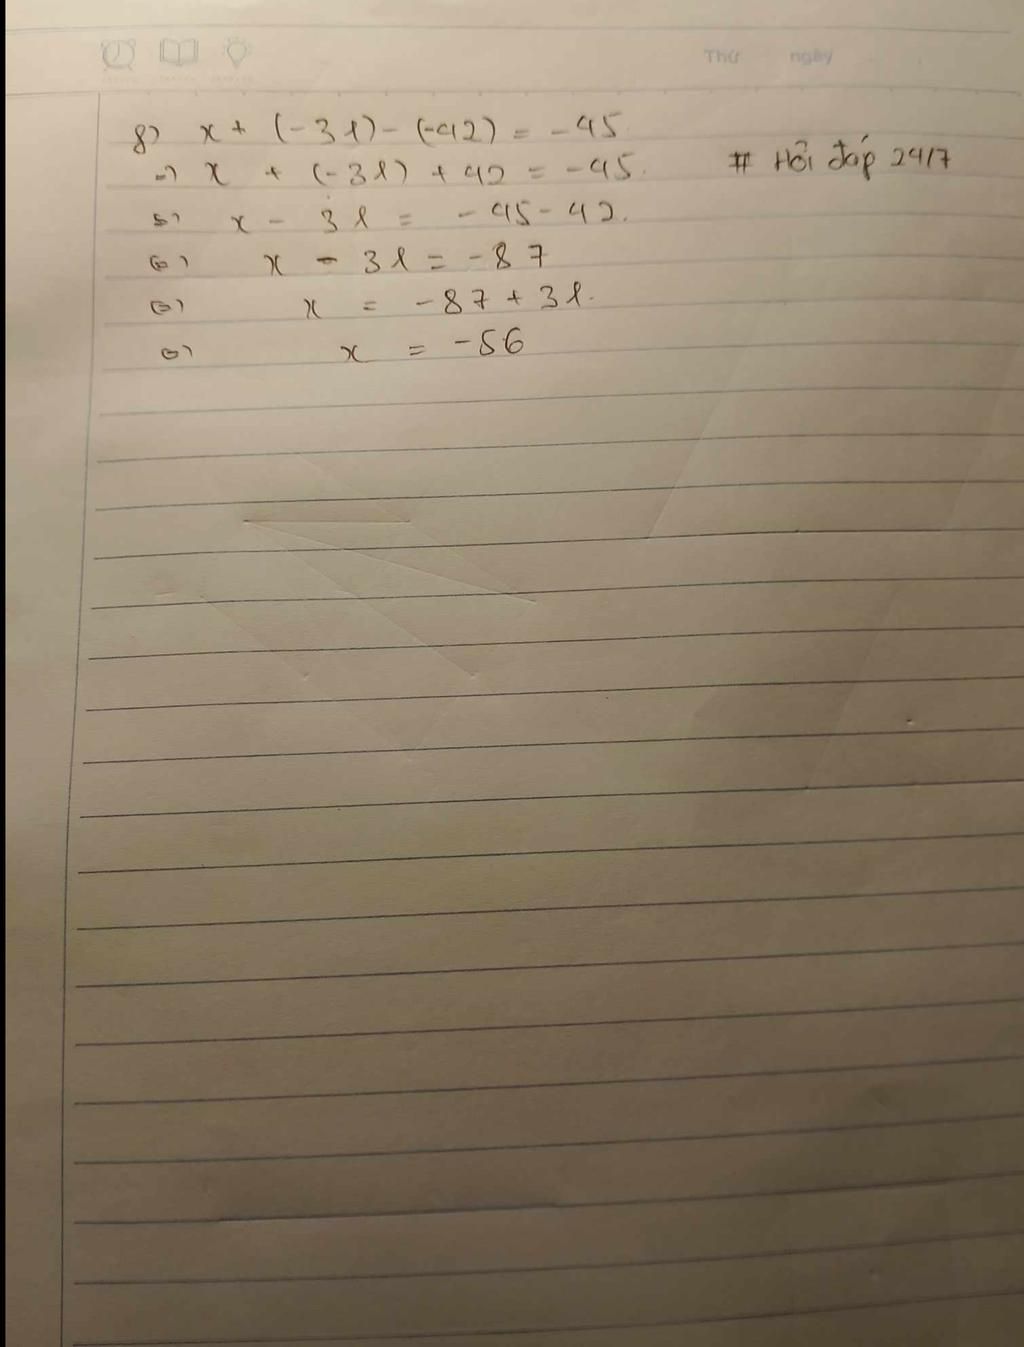 Thứ ngày
8) x + (-31) - (-42) = -45
=> x + (-31) + 42 = -45.
# Hỏi đáp 24/7
=> x - 31 = -45 - 42.
=> x - 31 = -87
=> x = -87 + 31.
=> x = -56